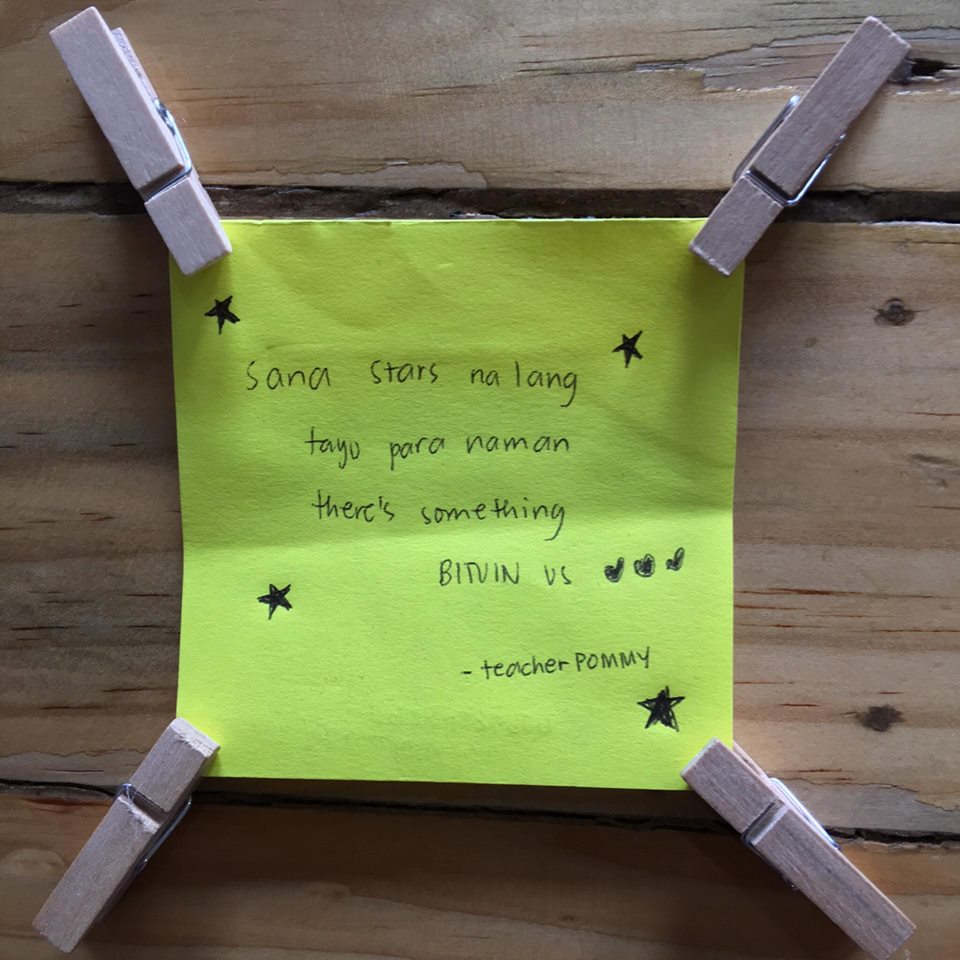 sana stars na lang
tayo para naman
there's something
BITUIN us
- teacher POMMY